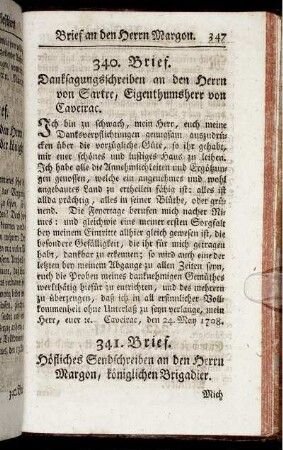 Brief an den Herrn Margon. 347
340. Brief.
Danksagungsschreiben an den Herrn
von Sartre, Eigenthumsherr von
Caveirac.
Ich bin zu schwach, mein Herr, euch meine
Danksverpflichtungen genugsam auszudrü-
cken über die vorzügliche Güte, so ihr gehabt,
mir euer schönes und lustiges Haus zu leihen.
Ich habe alle die Annehmlichkeiten und Ergötzun-
gen genossen, welche ein angenehmes und wohl
angebautes Land zu ertheilen fähig ist: alles ist
allda prächtig, alles in seiner Blüthe, oder grü-
nend. Die Feyertage berufen mich nacher Ni-
mes: und gleichwie eine meiner ersten Sorgfalt
bey meinem Eintritte allhier gleich gewesen ist, die
besondere Gefälligkeit, die ihr für mich getragen
habt, dankbar zu erkennen; so wird auch eine der
letzten bey meinem Abgange zu allen Zeiten seyn,
euch die Proben meines danknehmigen Gemüthes
werkthätig hiefür zu entrichten, und des mehrern
zu überzeugen, daß ich in all ersinnlicher Voll-
kommenheit ohne Unterlaß zu seyn verlange, mein
Herr, euer ꝛc. Caveirac, den 24. May 1708.
341. Brief.
Höfliches Sendschreiben an den Herrn
Margon, königlichen Brigadier.
Mich